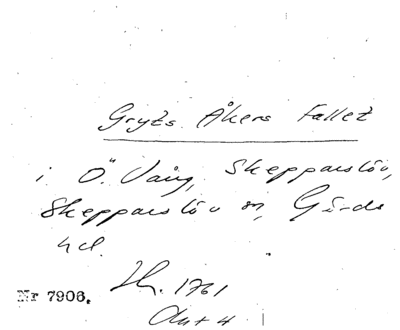 Gryts Åkers Fallet
i Ö. Vång, Skepparslöv,
Skepparslöv sn, Gärds
hd.
Nr 7906. Lk. 1761
Akt 4